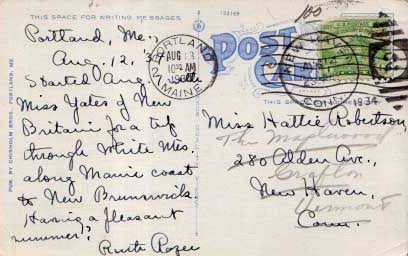 THIS SPACE FOR WRITING MESSAGES
133169
100
POST CARD
PORTLAND
AUG 13
10 30 AM
MAINE
NEW HAVEN
CONN. 1934
THIS SPACE
PUB. BY CHISHOLM BROS. PORTLAND, ME.
Portland, Me.,
Aug. 12, '34
Started Aug.
Miss Yates of New
Britain for a trip
through White Mts.
along Maine coast
to New Brunswick
Having a pleasant
summer?
Ruth
Miss Hattie Robertson,
The Maplewood
280 Alden Ave.,
Grafton
New Haven,
Vermont
Conn.